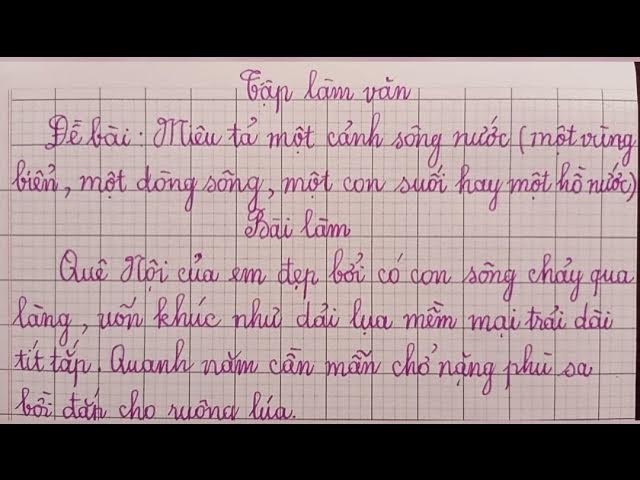 Tập làm văn
Đề bài: Miêu tả một cảnh sông nước (một vùng
biển, một dòng sông, một con suối hay một hồ nước)
Bài làm
Quê Nội của em đẹp bởi có con sông chảy qua
làng, uốn khúc như dải lụa mềm mại trải dài
tít tắp. Quanh năm cần mẫn chở nặng phù sa
bồi đắp cho ruộng lúa.